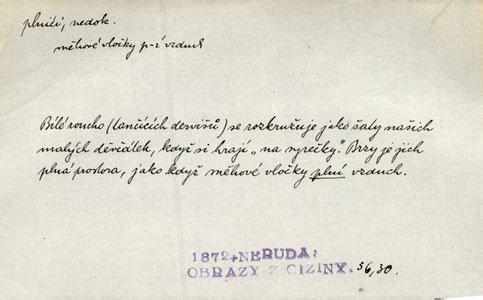 plniti, nedok.
sněhové vločky p-í vzduch
Bílé roucho (tančících dervišů) se rozkružuje jako šaty našich
malých děvčátek, když si hrají „na syrečky.“ Brzy je jich
plná prostora, jako když sněhové vločky plní vzduch.
1872+NERUDA:
OBRAZY Z CIZINY. 56,30.